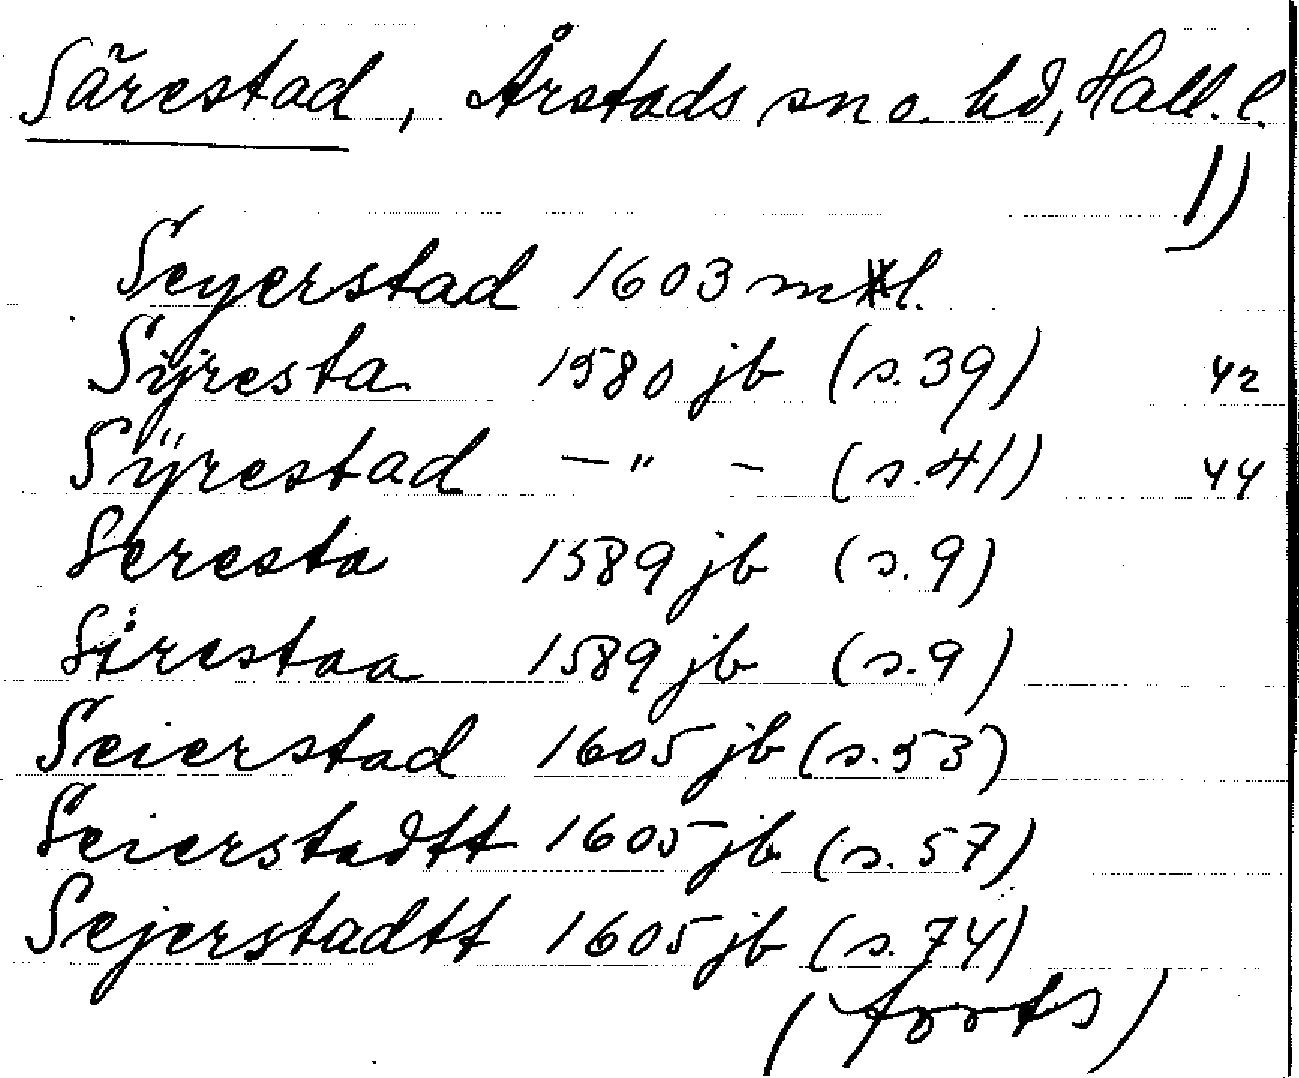 Särestad, Årstads sn o. hd, Hall. l.
1)
Seyerstad 1603 mtl.
Sÿresta 1580 jb (s. 39) 42
Sÿrestad —"— (s. 41) 44
Seresta 1589 jb (s. 9)
Sirestaa 1589 jb (s. 9)
Seierstad 1605 jb (s. 53)
Seierstadtt 1605 jb (s. 57)
Sejerstadtt 1605 jb (s. 74)
(forts)